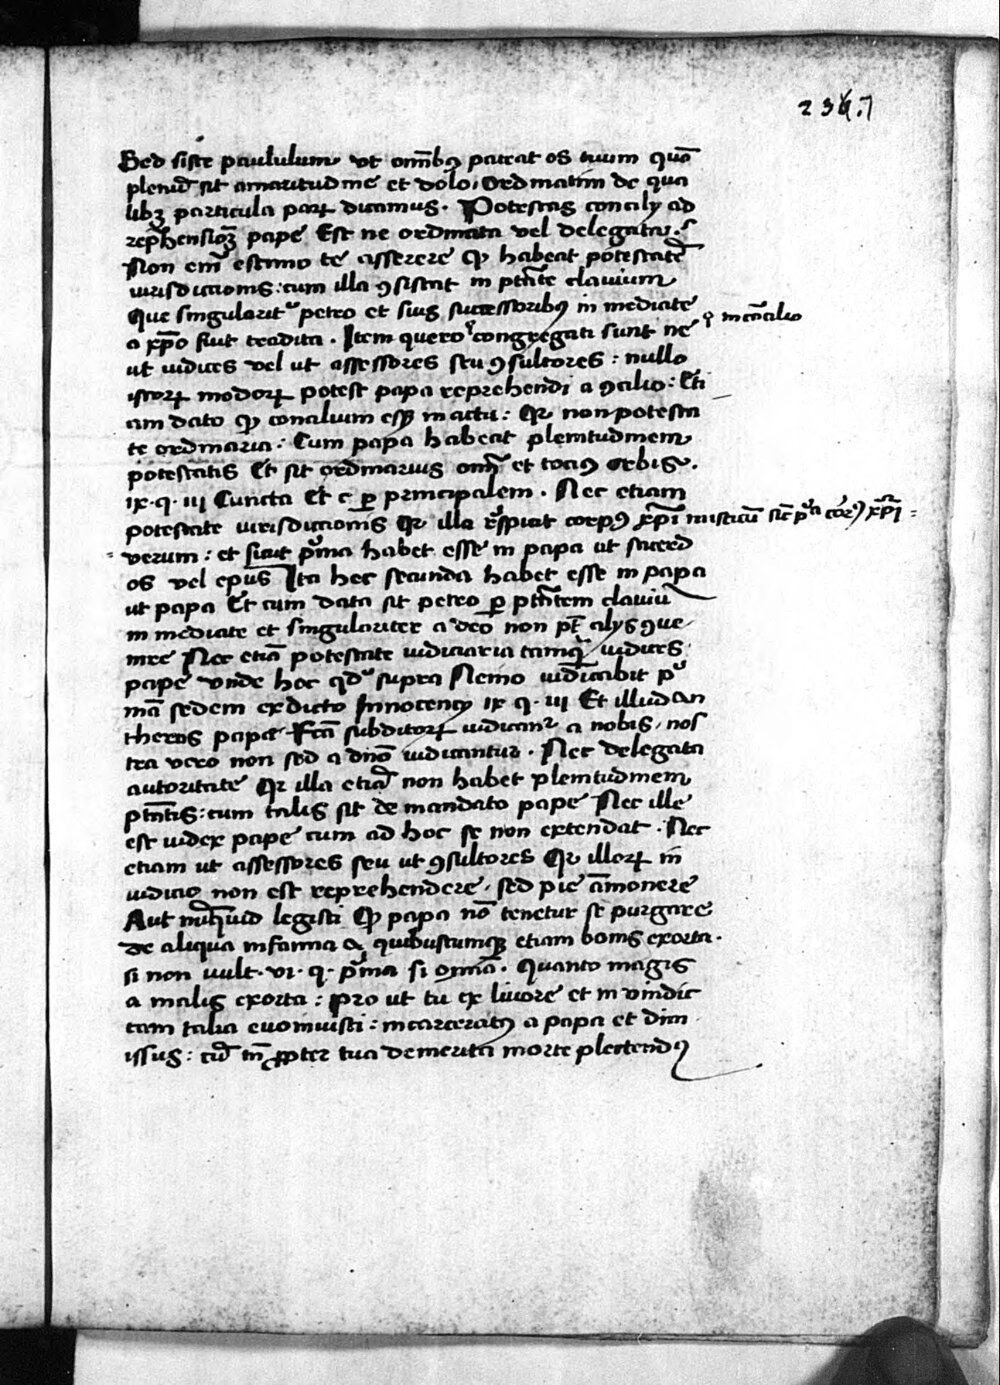 236.7
Sed siste paululum ut om̄ibꝯ pateat os tuum quā
plenū sit amaritudine et dolo. Ordinatim de qua
libꝫ particula parū dicamus. Potestas concily ad
rep̄hensionꝫ pape Est ne ordinata vel delegata.
Non em̄ estimo te asserere ꝙ habeat potestatē
iurisdictionis: cum illa ꝯsistat in ptāte clauium
Que singularitᵉ petro et suis successoribꝯ in mediate
a xp̄o sint tradita. Item quero congregati sunt ne in cōcilio
ut iudices vel ut assessores seu ꝯsultores: nullo
istorꝝ modorꝝ potest papa reprehendi a ꝯcilio: Eti
am dato ꝙ concilium esset in actu: Qꝛ non potesta
te ordinaria: Cum papa habeat plenitudinem
potestatis Et sit ordinarius om̄ et tocius orbis.
ix. q. iii Cuncta Et c ꝑ principalem. Nec etiam
potestate iurisdictionis Qꝛ illa rēspicit corpꝯ xp̄i misticū sic pᵃ corꝯ xp̄i =
= verum: et sicut pᵃma habet esse in papa ut sacerd
os vel epūs Ita hec secunda habet esse in papa
ut papa Et cum data sit petro ꝑ ptātem clauiū
in mediate et singulariter a deo non pt̄ alys ꝯue
nire Nec etiā potestate iudiciaria tamqᵃ iudices
pape Unde hoc qdᵒ supra Nemo iudicabit pⁱ
mā sedem ex dicto Innocency ix q. iii Et illud an
theros papa Fcā subditorꝝ iudicantᵉ a nobis, nos
tra vero non sed a dn̄o iudicantur. Nec delegata
autoritate Qꝛ illa etiā non habet plenitudinem
ptātis: cum talis sit de mandato pape Nec ille
est iudex pape cum ad hoc se non extendat. Nec
etiam ut assessores seu ut ꝯsultores Qꝛ illorꝝ in
iudicio non est reprehendere, sed pie āmonere
Aut nūquid legisti Qꝙ papa nō tenetur se purgare
de aliqua infamia a quibuscumqꝫ etiam bonis exorta.
si non vult. vi. q. pᵃma si om̄ia. Quanto magis
a malis exorta: pro ut tu ex liuore et in vindic
tam talia euomuisti: incarceratꝯ a papa et dim
issus: cū tn̄ ꝓpter tua demerita morte plectendꝯ